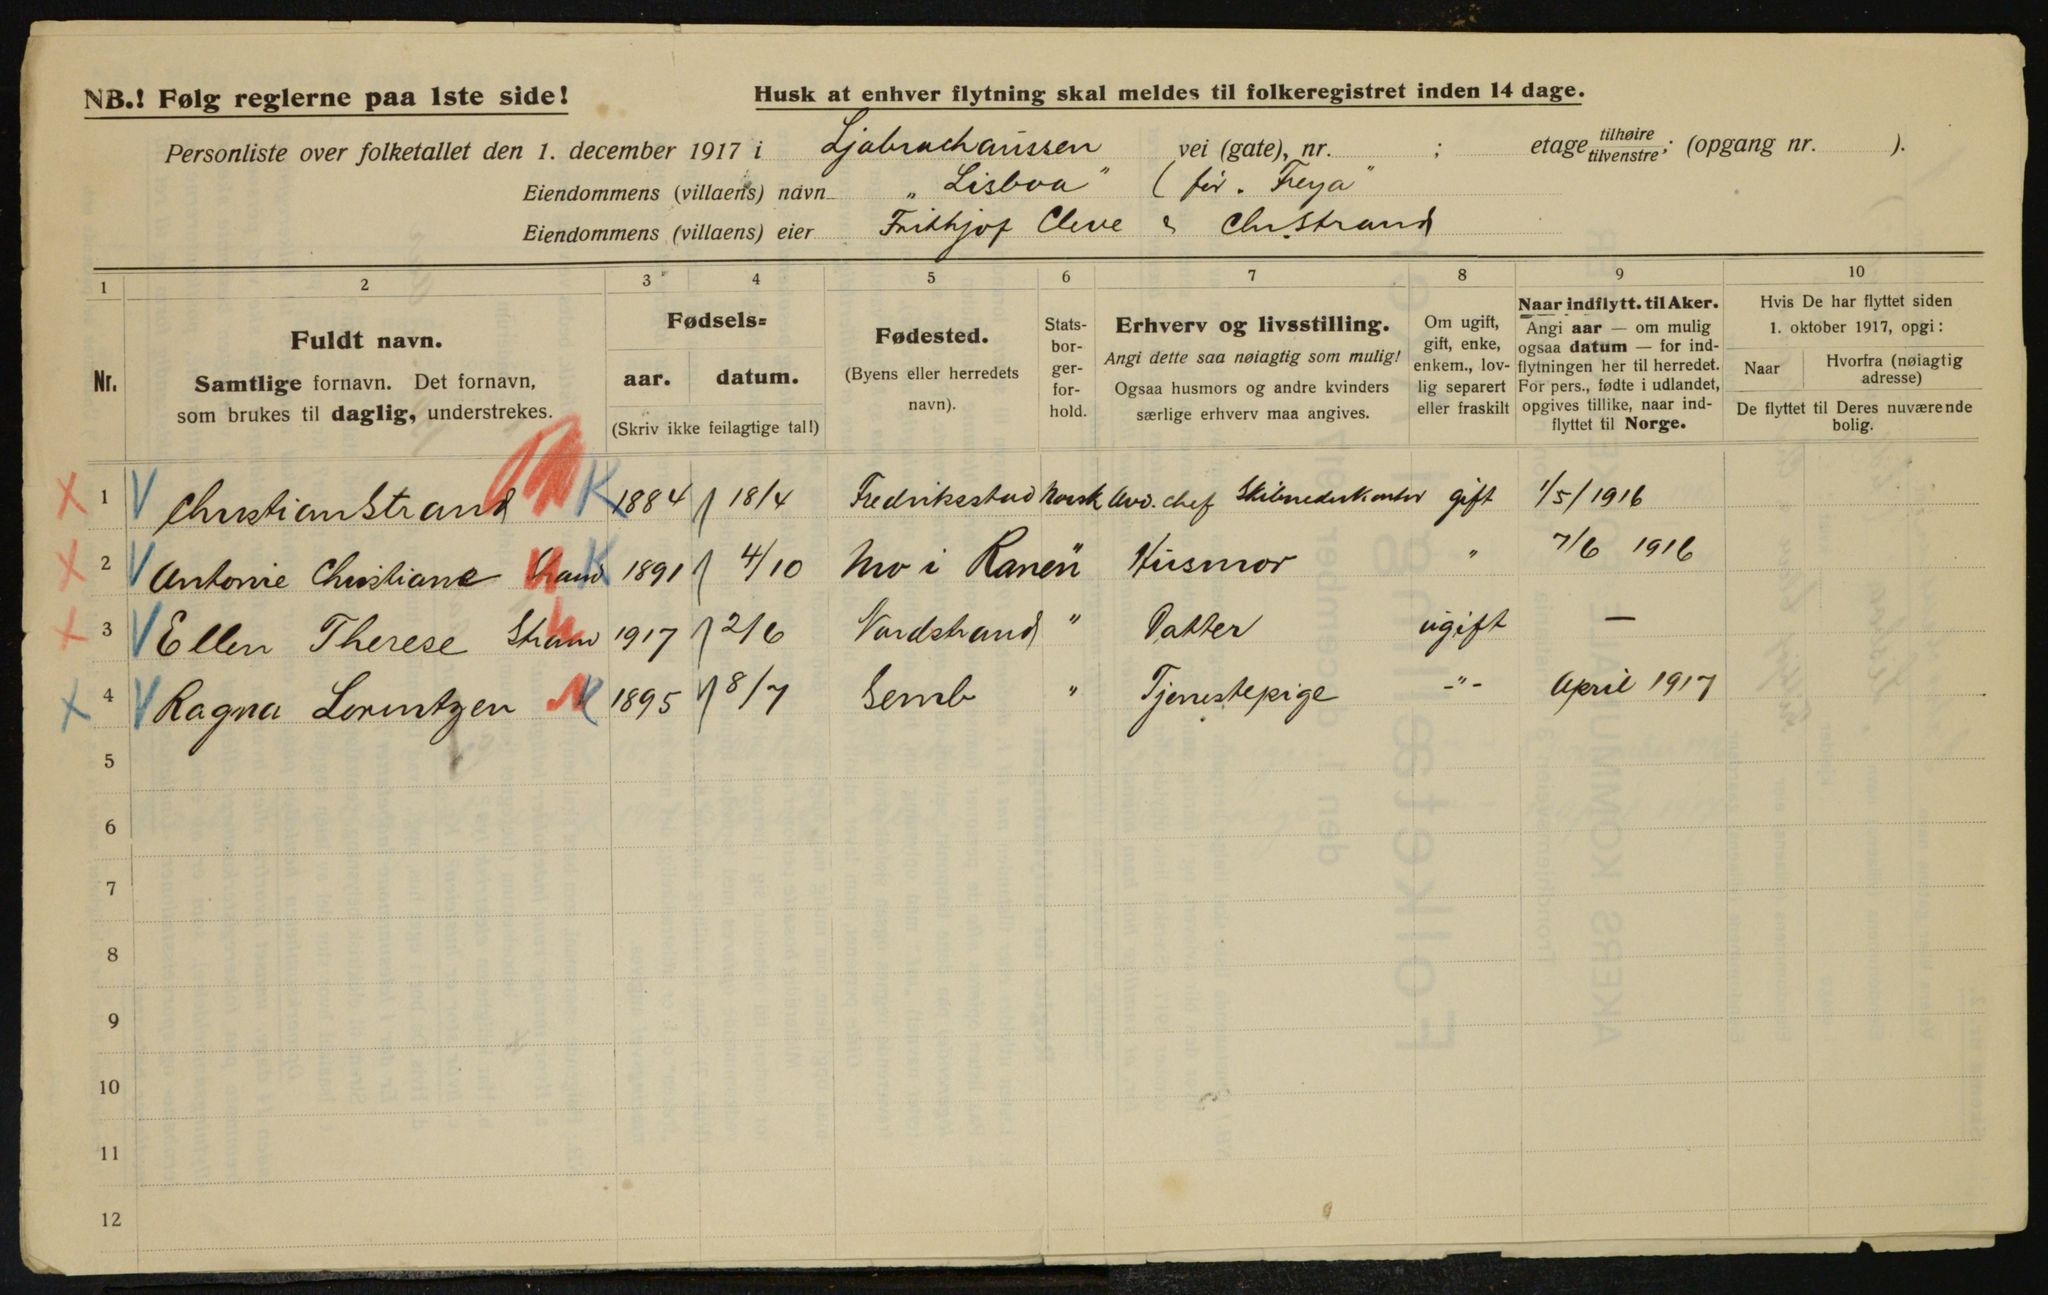 NB.! Følg reglerne paa 1ste side!
Husk at enhver flytning skal meldes til folkeregistret inden 14 dage.
Personliste over folketallet den 1. december 1917 i Ljabruchaussen vei (gate), nr. ; etage tilhøire tilvenstre; (opgang nr. ).
Eiendommens (villaens) navn „Lisboa" (før „Freya"
Eiendommens (villaens) eier Frithjof Cleve & Chr. Strand
1 2 3 4 5 6 7 8 9 10
Nr.
Fuldt navn.
Samtlige fornavn. Det fornavn,
som brukes til daglig, understrekes.
Fødsels=
aar. datum.
(Skriv ikke feilagtige tal!)
Fødested.
(Byens eller herredets
navn).
Stats-
bor-
ger-
for-
hold.
Erhverv og livsstilling.
Angi dette saa nøiagtig som mulig!
Ogsaa husmors og andre kvinders
særlige erhverv maa angives.
Om ugift,
gift, enke,
enkem., lov-
lig separert
eller fraskilt
Naar indflytt. til Aker.
Angi aar — om mulig
ogsaa datum — for ind-
flytningen her til herredet.
For pers., fødte i utlandet,
opgives tillike, naar ind-
flyttet til Norge.
Hvis De har flyttet siden
1. oktober 1917, opgi:
Naar
Hvorfra (nøiagtig
adresse)
De flyttet til Deres nuværende
bolig.
1 Christian Strand 1884 18/4 Fredriksstad Norsk Avd. chef Skibsrederkontor gift 1/5/1916
2 Antonie Christiane Strand 1891 4/10 Mo i Ranen " Husmor " 7/6 1916
3 Ellen Therese Strand 1917 2/6 Nordstrand " Datter ugift —
4 Ragna Lorentzen 1895 8/7 Semb " Tjenestepige -"- April 1917
5
6
7
8
9
10
11
12